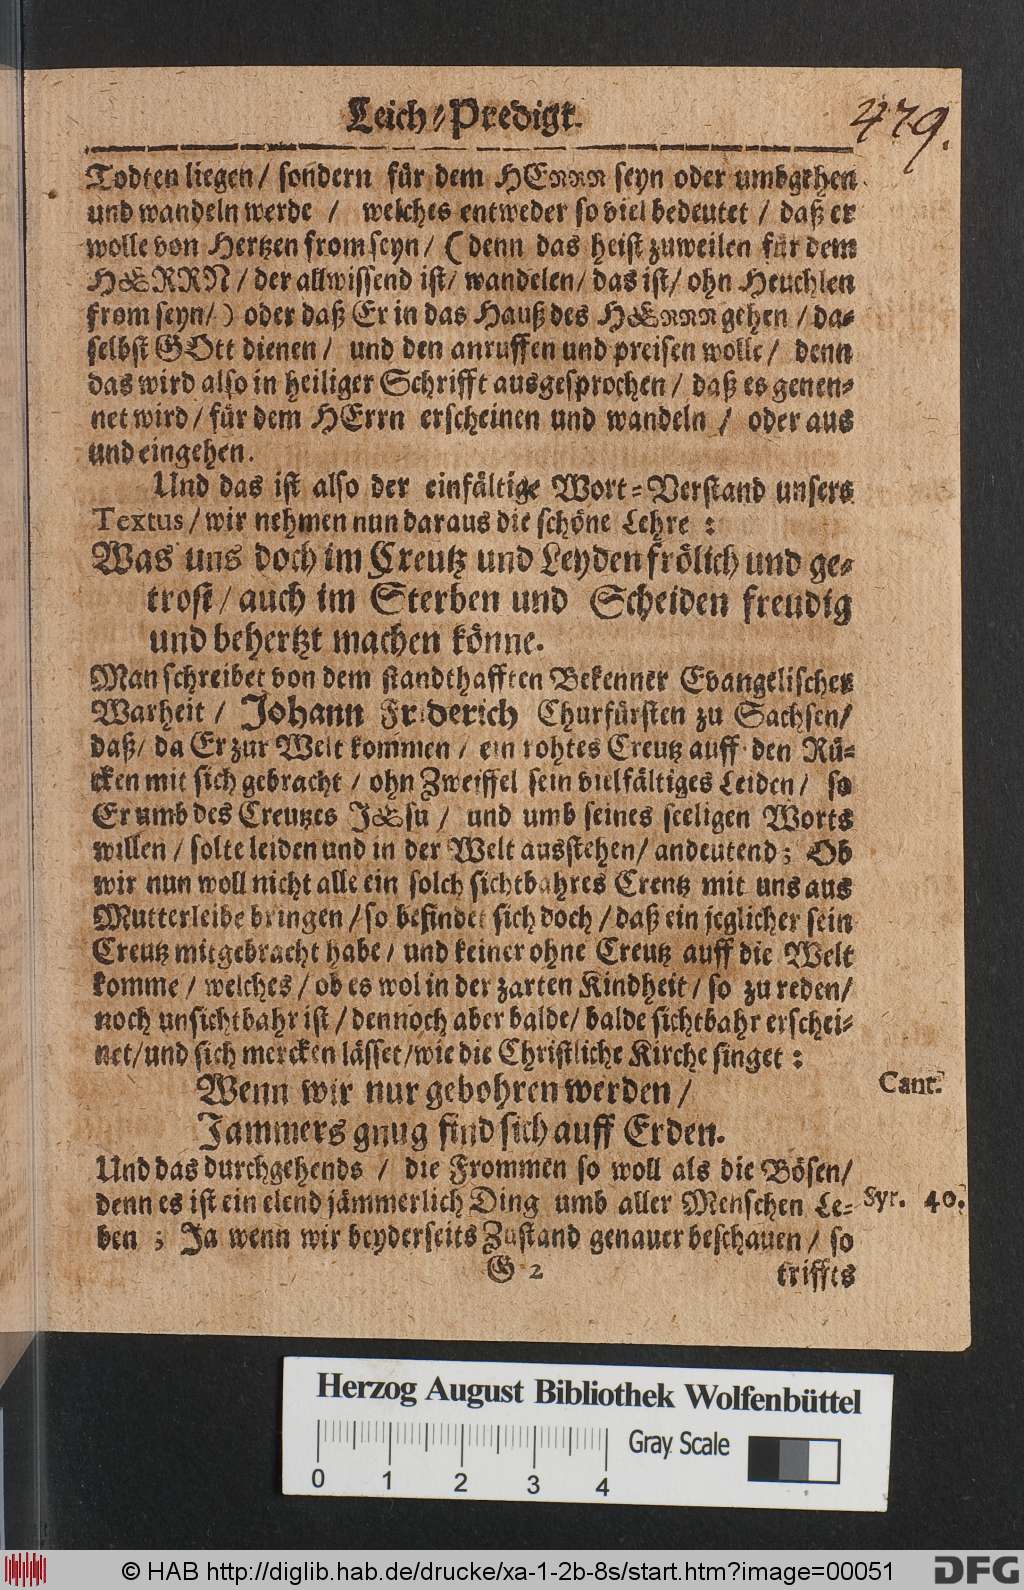 Leich-Predigt.
479.
Todten liegen / sondern für dem HERRN seyn oder umbgehen
und wandeln werde / welches entweder so viel bedeutet / daß er
wolle von Hertzen from seyn / (denn das heist zuweilen für dem
HERRN / der allwissend ist / wandelen / das ist / ohn Heuchlen
from seyn /) oder daß Er in das Hauß des HERRN gehen / da-
selbst GOtt dienen / und den anruffen und preisen wolle / denn
das wird also in heiliger Schrifft ausgesprochen / daß es genen-
net wird / für dem HErrn erscheinen und wandeln / oder aus
und eingehen.
Und das ist also der einfältige Wort-Verstand unsers
Textus / wir nehmen nun daraus die schöne Lehre :
Was uns doch im Creutz und Leyden frölich und ge-
trost / auch im Sterben und Scheiden freudig
und behertzt machen könne.
Man schreibet von dem standthafften Bekenner Evangelischer
Warheit / Johann Friderich Churfürsten zu Sachsen /
daß / da Er zur Welt kommen / ein rohtes Creutz auff den Rü-
cken mit sich gebracht / ohn Zweiffel sein vielfältiges Leiden / so
Er umb des Creutzes JEsu / und umb seines seeligen Worts
willen / solte leiden und in der Welt ausstehen / andeutend ; Ob
wir nun woll nicht alle ein solch sichtbahres Crentz mit uns aus
Mutterleibe bringen / so befindet sich doch / daß ein jeglicher sein
Creutz mitgebracht habe / und keiner ohne Creutz auff die Welt
komme / welches / ob es wol in der zarten Kindheit / so zu reden /
noch unsichtbahr ist / dennoch aber balde / balde sichtbahr erschei-
net / und sich mercken lässet / wie die Christliche Kirche singet :
Wenn wir nur gebohren werden /
Cant.
Jammers gnug find sich auff Erden.
Und das durchgehends / die Frommen so woll als die Bösen /
denn es ist ein elend jämmerlich Ding umb aller Menschen Le-
Syr. 40.
ben ; Ja wenn wir beyderseits Zustand genauer beschauen / so
G 2
triffts
Herzog August Bibliothek Wolfenbüttel
Gray Scale
0 1 2 3 4
© HAB http://diglib.hab.de/drucke/xa-1-2b-8s/start.htm?image=00051
DFG